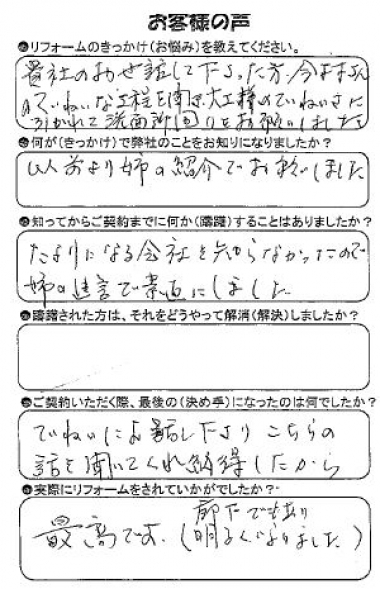 お客様の声
●リフォームのきっかけ(お悩み)を教えてください。
貴社のお世話して下さった方、今までの
ていねいな工程を聞き、大工様のていねいさに
引かれて洗面所回りをお願いしました
●何が(きっかけ)で弊社のことをお知りになりましたか?
以前より姉の紹介でお願いしました
●知ってからご契約までに何か(躊躇)することはありましたか?
たよりになる会社を知らなかったので
姉の進言で素直にしました
●躊躇された方は、それをどうやって解消(解決)しましたか?
●ご契約いただく際、最後の(決め手)になったのは何でしたか?
ていねいにお話し下さりこちらの
話を聞いてくれ納得したから
●実際にリフォームをされていかがでしたか?
廊下でもあり
最高です。(明るくなりました)